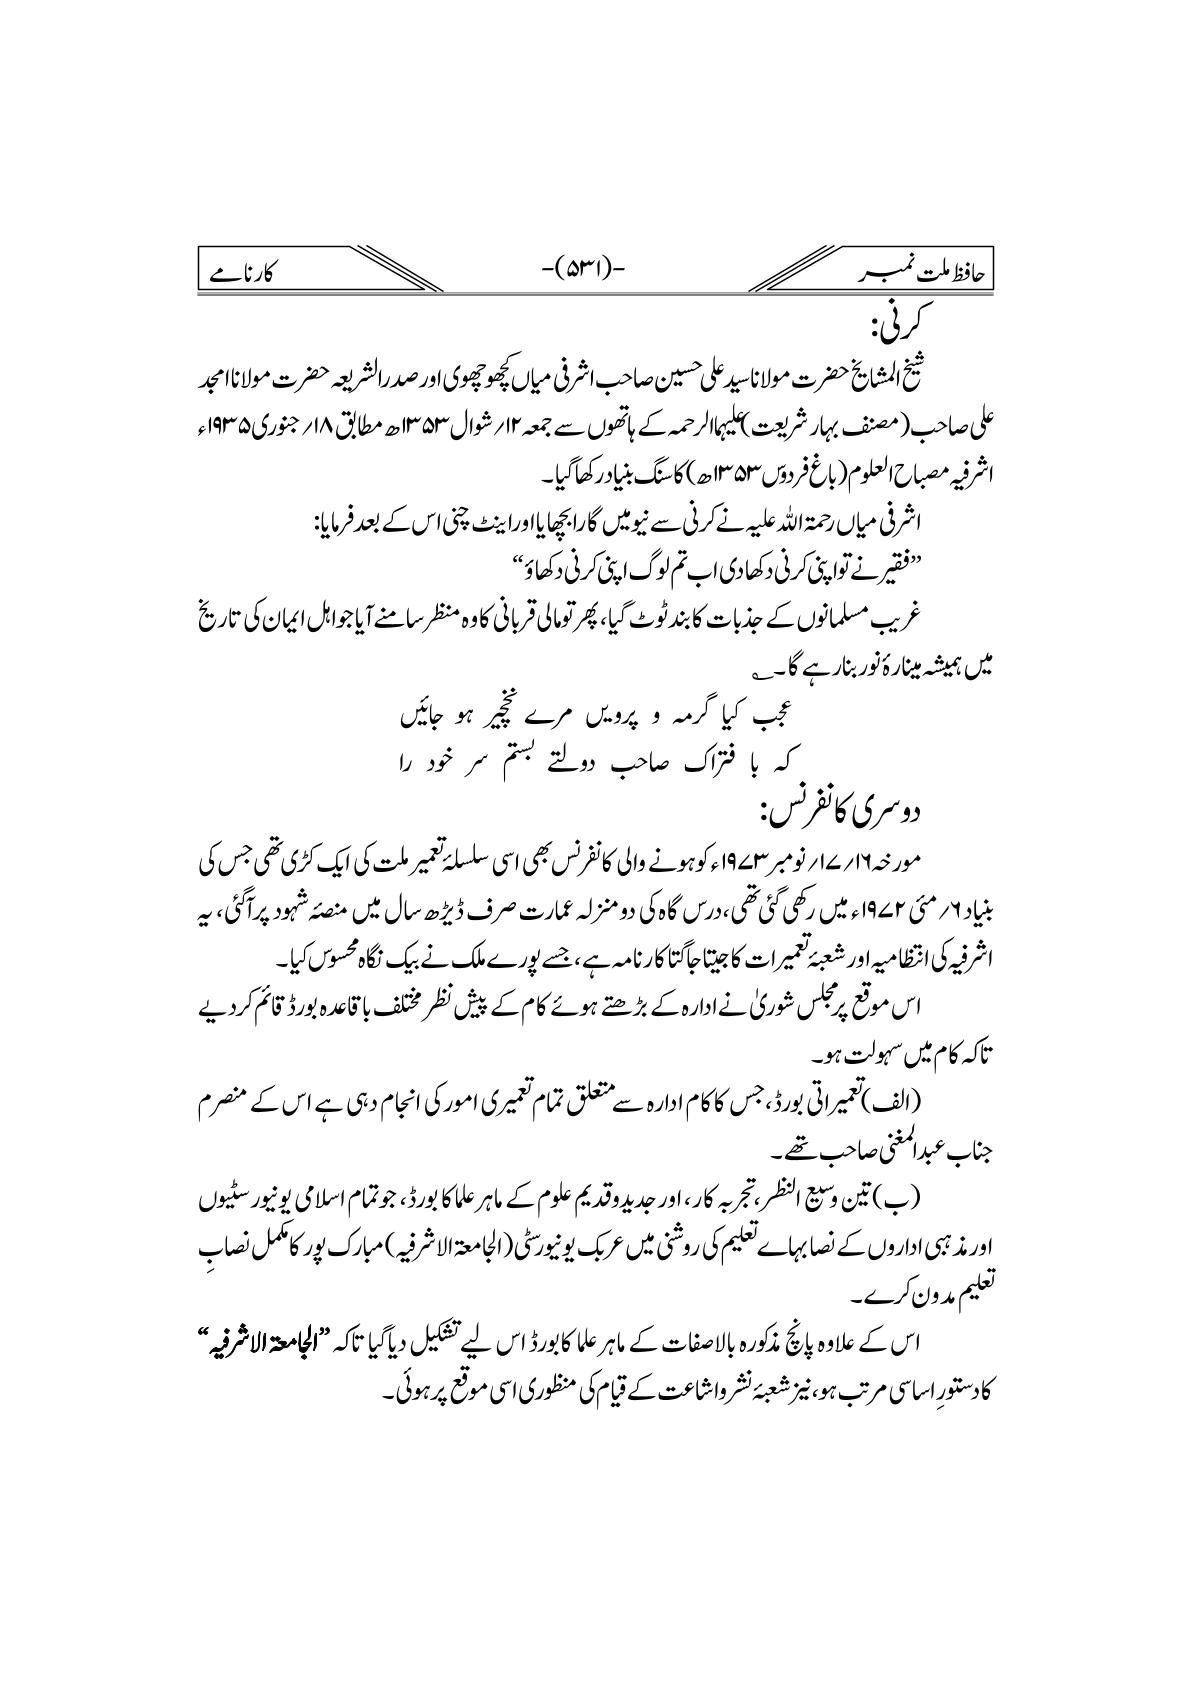 حافظ ملت نمبر -(۵۳۱)- کارنامے
کرنی:
شیخ المشایخ حضرت مولانا سید علی حسین صاحب اشرفی میاں کچھوچھوی اور صدر الشریعہ حضرت مولانا امجد
علی صاحب (مصنف بہار شریعت) علیہما الرحمہ کے ہاتھوں سے جمعہ ۱۲؍ شوال ۱۳۵۳ھ مطابق ۱۸؍ جنوری ۱۹۳۵ء
اشرفیہ مصباح العلوم (باغ فردوس ۱۳۵۳ھ) کا سنگ بنیاد رکھا گیا۔
اشرفی میاں رحمۃ اللہ علیہ نے کرنی سے نیو میں گارا بچھایا اور اینٹ چنی اس کے بعد فرمایا:
”فقیر نے تو اپنی کرنی دکھا دی اب تم لوگ اپنی کرنی دکھاؤ“
غریب مسلمانوں کے جذبات کا بند ٹوٹ گیا، پھر تو مالی قربانی کا وہ منظر سامنے آیا جو اہل ایمان کی تاریخ
میں ہمیشہ مینارۂ نور بنا رہے گا۔ ؎
عجب کیا گر مہ و پرویں مرے نخچیر ہو جائیں
کہ با فتراک صاحب دولتے بستم سر خود را
دوسری کانفرنس:
مورخہ ۱۶؍ ۱۷؍ نومبر ۱۹۷۳ء کو ہونے والی کانفرنس بھی اسی سلسلۂ تعمیر ملت کی ایک کڑی تھی جس کی
بنیاد ۶؍ مئی ۱۹۷۲ء میں رکھی گئی تھی، درس گاہ کی دو منزلہ عمارت صرف ڈیڑھ سال میں منصۂ شہود پر آگئی، یہ
اشرفیہ کی انتظامیہ اور شعبۂ تعمیرات کا جیتا جاگتا کارنامہ ہے، جسے پورے ملک نے بیک نگاہ محسوس کیا۔
اس موقع پر مجلس شوریٰ نے ادارہ کے بڑھتے ہوئے کام کے پیش نظر مختلف باقاعدہ بورڈ قائم کر دیے
تاکہ کام میں سہولت ہو۔
(الف) تعمیراتی بورڈ، جس کا کام ادارہ سے متعلق تمام تعمیری امور کی انجام دہی ہے اس کے منصرم
جناب عبدالمغنی صاحب تھے۔
(ب) تین وسیع النظر، تجربہ کار، اور جدید و قدیم علوم کے ماہر علما کا بورڈ، جو تمام اسلامی یونیورسٹیوں
اور مذہبی اداروں کے نصابہاے تعلیم کی روشنی میں عربک یونیورسٹی (الجامعۃ الاشرفیہ) مبارک پور کا مکمل نصابِ
تعلیم مدون کرے۔
اس کے علاوہ پانچ مذکورہ بالا صفات کے ماہر علما کا بورڈ اس لیے تشکیل دیا گیا تاکہ ”الجامعۃ الاشرفیہ“
کا دستورِ اساسی مرتب ہو، نیز شعبۂ نشر و اشاعت کے قیام کی منظوری اسی موقع پر ہوئی۔